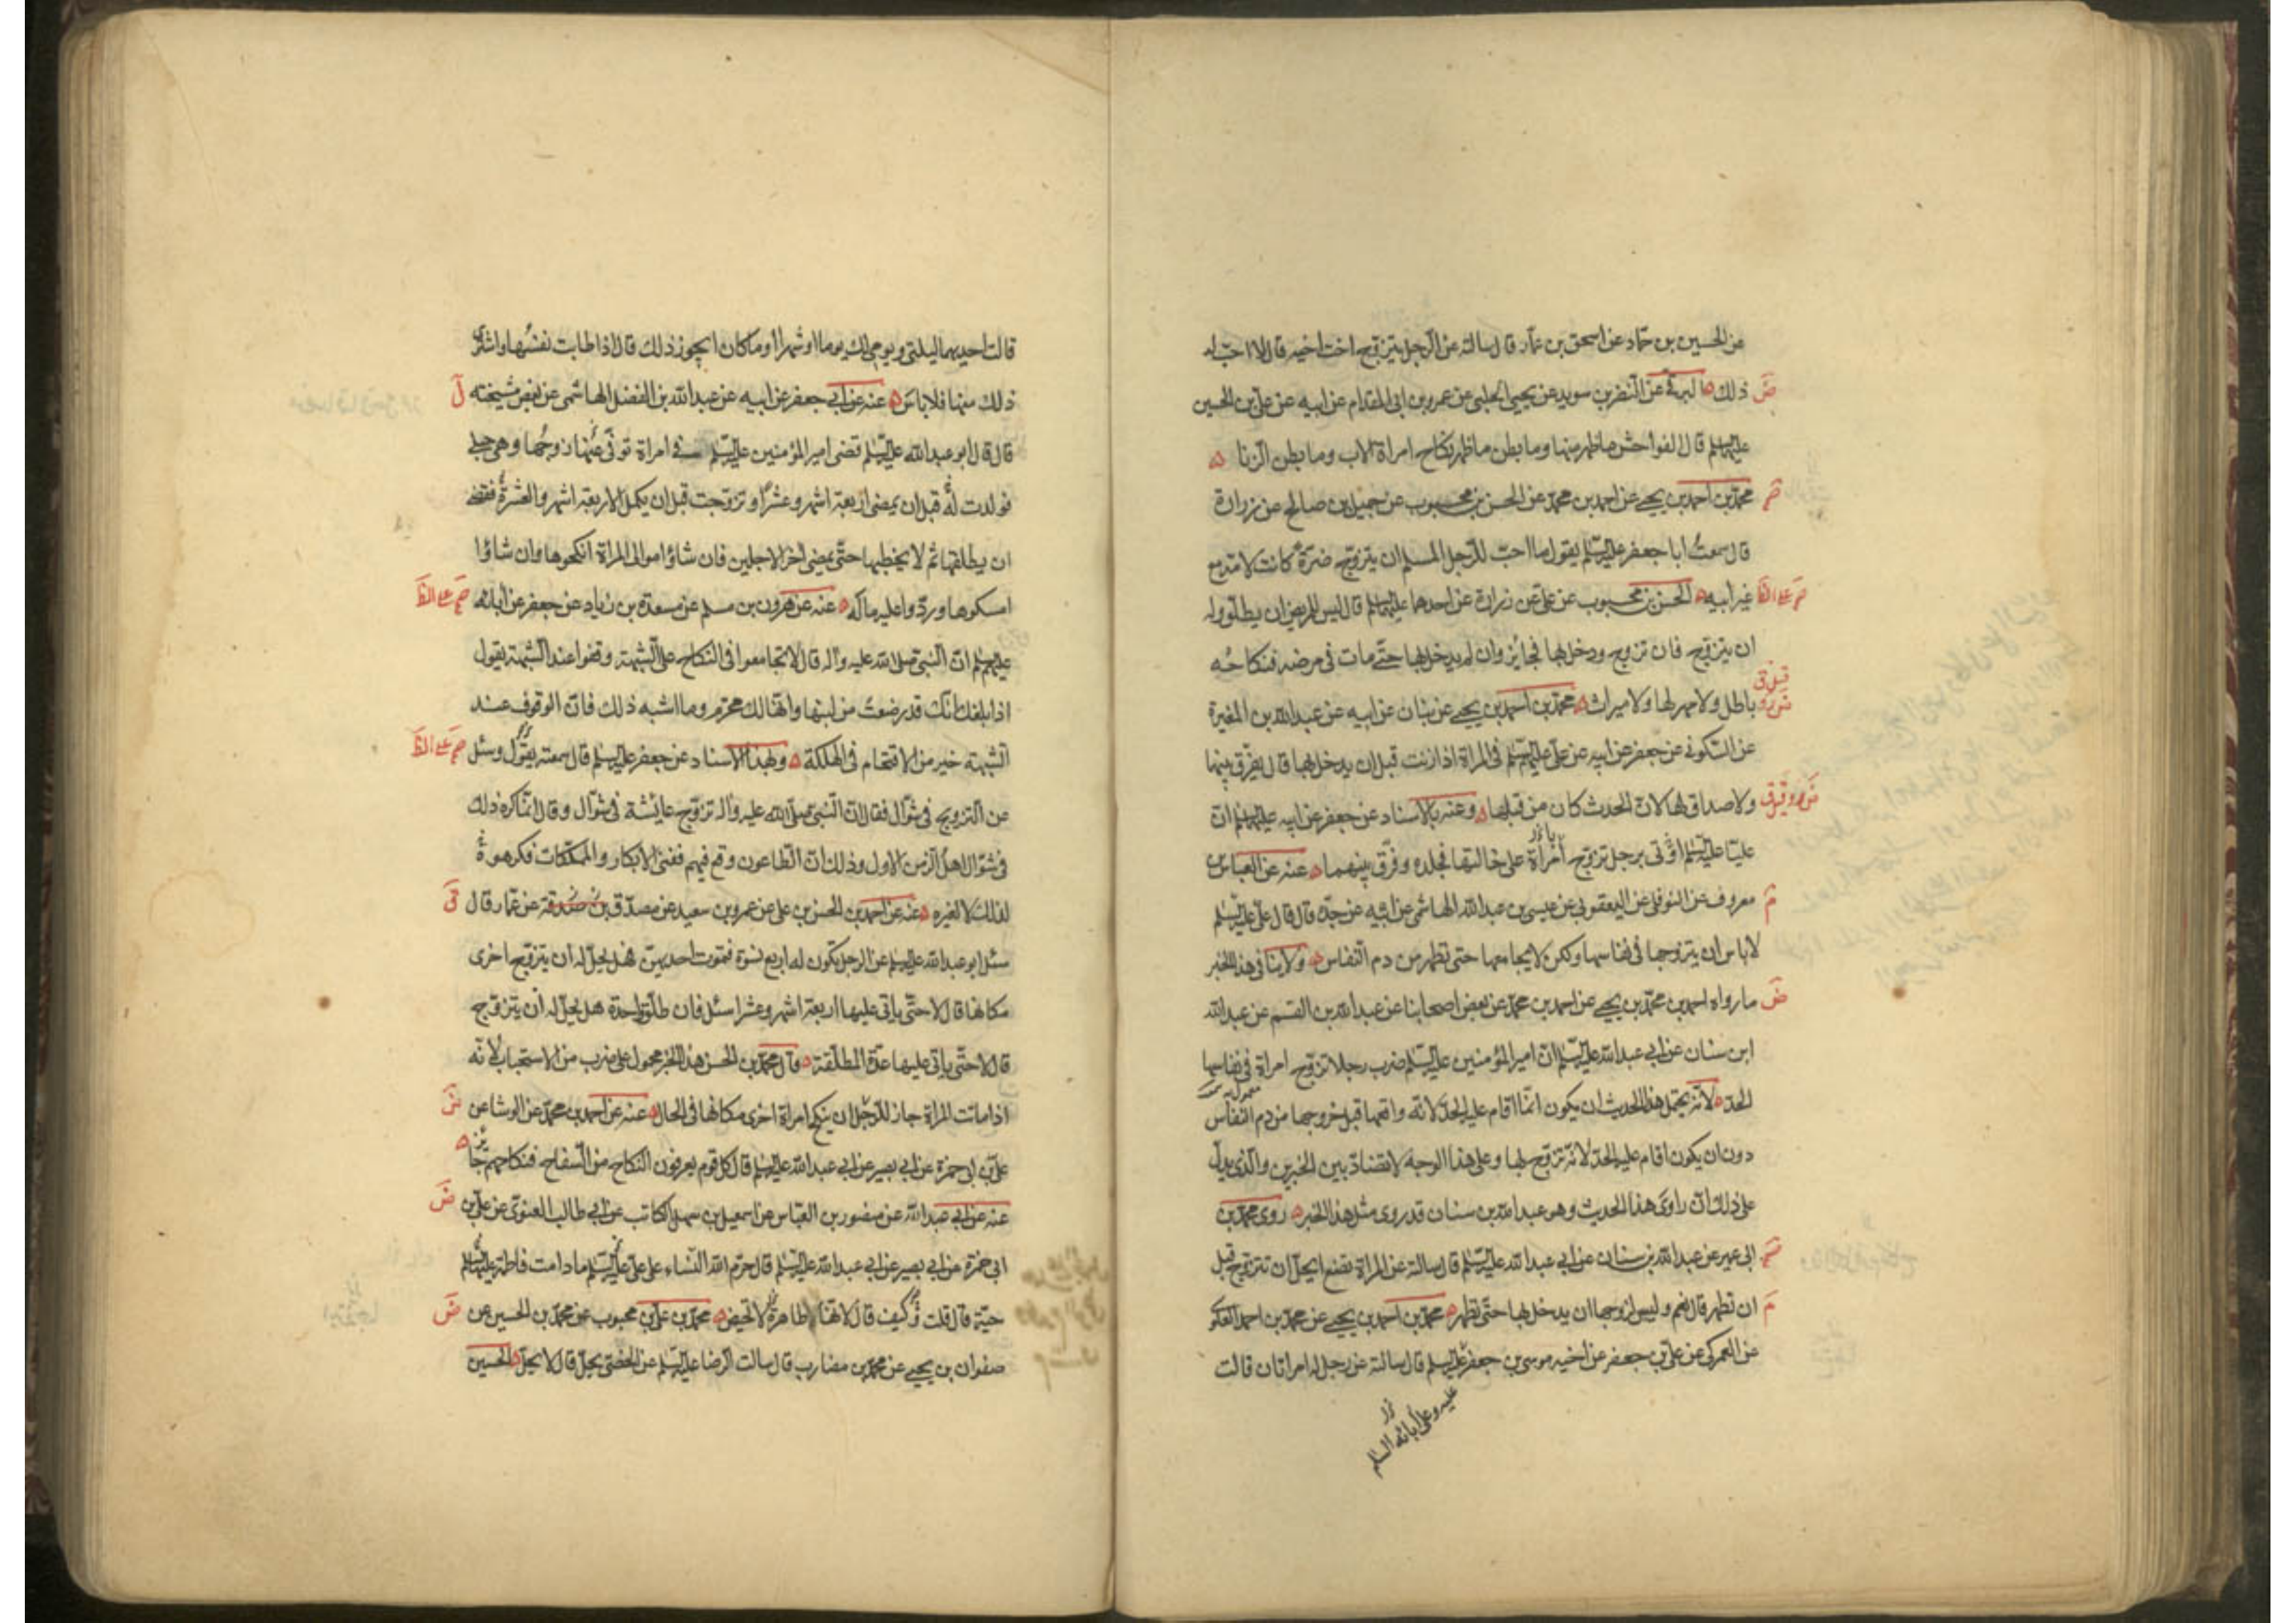 عن الحسين بن حماد عن اسحق بن عمار قال سالته عن الرجل يتزوج اخت اخيه قال لا احب له
ذلك البرقى عن النضر بن سويد عن يحيى الحلبى عن عمرو بن ابى المقدام عن ابيه عن على بن الحسين
عليهما السلام قال الفواحش ما ظهر منها وما بطن ما ظهر نكاح امراة الاب وما بطن الزنا
محمد بن احمد بن يحيى عن احمد بن محمد عن الحسن بن محبوب عن جميل بن صالح عن زرارة
قال سمعت ابا جعفر عليه السلام يقول ما احب للرجل المسلم ان يتزوج ضرة كانت لامه مع
غير ابيه الحسن بن محبوب عن على عن زرارة عن احدهما عليهما السلام قال ليس للمريض ان يطلق وله
ان يتزوج فان تزوج ودخل بها فجايز وان لم يدخل بها حتى مات فى مرضه فنكاحه
باطل ولا مهر لها ولا ميراث محمد بن احمد بن يحيى عن بنان عن ابيه عن عبد الله بن المغيرة
عن السكونى عن جعفر عن ابيه عن على عليهم السلام فى المراة اذا زنت قبل ان يدخل بها قال يفرق بينهما
ولا صداق لها لان الحدث كان من قبلها وعنه بالاسناد عن جعفر عن ابيه عليهما السلام ان
عليا عليه السلام اوتى برجل تزوج امراة على خالتها فجلده وفرق بينهما عنه عن العباس بن
معروف عن النوفلى عن اليعقوبى عن عيسى بن عبد الله الهاشمى عن ابيه عن جده قال قال على عليه السلام
لا باس ان يتزوجها فى نفاسها ولكن لا يجامعها حتى تطهر من دم النفاس ولا ينافى هذا الخبر
ما رواه احمد بن محمد بن يحيى عن احمد بن محمد عن بعض اصحابنا عن عبد الله بن القسم عن عبد الله
ابن سنان عن ابى عبد الله عليه السلام ان امير المؤمنين عليه السلام ضرب رجلا تزوج امراة فى نفاسها
الحد لانه يحتمل هذا الحديث ان يكون انما اقام عليه الحد لانه واقعها قبل خروجها من دم النفاس
دون ان يكون اقام عليه الحد لانه تزوج بها وعلى هذا الوجه لا تضاد بين الخبرين والذى يدل
على ذلك ان راوى هذا الحديث وهو عبد الله بن سنان قد روى مثل هذا الخبر روى محمد بن
ابى عمير عن عبد الله بن سنان عن ابى عبد الله عليه السلام قال سالته عن المراة تضع ايحل ان تتزوج قبل
ان تطهر قال نعم وليس لزوجها ان يدخل بها حتى تطهر محمد بن احمد بن يحيى عن محمد بن احمد العلوى
عن العمركى عن على بن جعفر عن اخيه موسى بن جعفر عليه السلام قال سالته عن رجل له امراتان قالت
عليه وعلى آبائه السلم
قالت احديهما ليلتى ويومى لك يوما او شهرا او ما كان ايجوز ذلك قال اذا طابت نفسها واشترى
ذلك منها فلا باس عنه عن ابى جعفر عن ابيه عن عبد الله بن الفضل الهاشمى عن بعض مشيخته
قال قال ابو عبد الله عليه السلام قضى امير المؤمنين عليه السلام فى امراة توفى عنها زوجها وهى حبلى
فولدت قبل ان يمضى اربعة اشهر وعشرا وتزوجت قبل ان يكمل الاربعة اشهر والعشرة فقضى
ان يطلقها ثم لا يخطبها حتى يمضى آخر الاجلين فان شاؤا موالى المراة انكحوها وان شاؤا
امسكوها وردوا عليه ماله عنه عن هرون بن مسلم عن مسعدة بن زياد عن جعفر عن آبائه
عليهم السلام ان النبى صلى الله عليه وآله قال لا تجامعوا فى النكاح على الشبهة وقفوا عند الشبهة يقول
اذا بلغك انك قد رضعت من لبنها وانها لك محرم وما اشبه ذلك فان الوقوف عند
الشبهة خير من الاقتحام فى الهلكة وبهذا الاسناد عن جعفر عليه السلام قال سمعته يقول وسئل
عن التزويج فى شوال فقال ان النبى صلى الله عليه وآله تزوج عائشة فى شوال وقال انما كره ذلك
فى شوال اهل الزمن الاول وذلك ان الطاعون وقع فيهم ففنى الابكار والمملكات فكرهوه
لذلك لا لغيره عنه عن احمد بن الحسن بن على عن عمرو بن سعيد عن مصدق بن صدقة عن عمار قال
سئل ابو عبد الله عليه السلام عن الرجل تكون له اربع نسوة فتموت احديهن فهل يحل له ان يتزوج اخرى
مكانها قال لا حتى ياتى عليها اربعة اشهر وعشرا سئل فان طلق واحدة هل يحل له ان يتزوج
قال لا حتى ياتى عليها عدة المطلقة وقال محمد بن الحسن هذا الخبر محمول على ضرب من الاستحباب لانه
اذا ماتت المراة جاز للرجل ان ينكح امراة اخرى مكانها فى الحال عنه عن احمد بن محمد عن الوشا عن
على بن ابى حمزة عن ابى بصير عن ابى عبد الله عليه السلام قال كل قوم يعرفون النكاح من السفاح فنكاحهم جائز
عنه عن ابى عبد الله عن منصور بن العباس عن اسمعيل بن سهل الكاتب عن ابى طالب الغنوى عن على بن
ابى حمزة عن ابى بصير عن ابى عبد الله عليه السلام قال حرم الله النساء على على عليه السلام ما دامت فاطمة عليها السلام
حية قال قلت وكيف قال لانها طاهرة لا تحيض محمد بن على بن محبوب عن محمد بن الحسين عن
صفوان بن يحيى عن محمد بن مضارب قال سالت الرضا عليه السلام عن الخصى يحلل قال لا يحلل الحسين